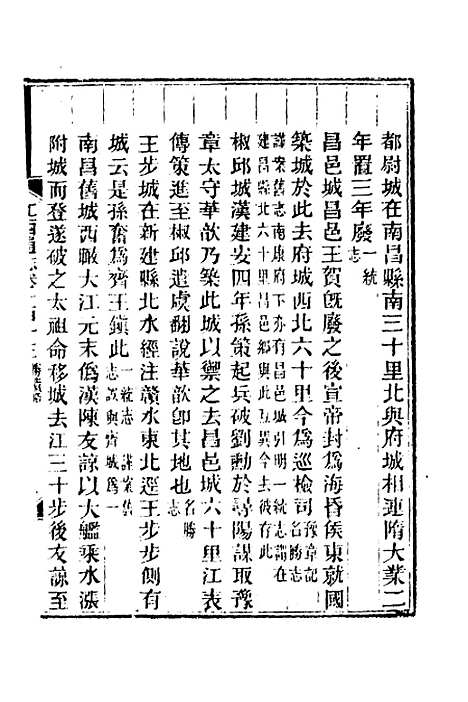 都尉城在南昌縣南三十里北與府城相連隋大業二
年置三年廢一統志
昌邑城昌邑王賀旣廢之後宣帝封爲海昏侯東就國
築城於此去府城西北六十里今爲巡檢司豫章記名勝志
謹案舊志南康府下亦有昌邑城引明一統志謂在
建昌縣北六十里昌邑鄉與此互異今去彼存此
椒邱城漢建安四年孫策起兵破劉勳於尋陽謀取豫
章太守華歆乃築此城以禦之去昌邑城六十里江表
傳策進至椒邱遣虞翻說華歆卽其地也名勝志
王步城在新建縣北水經注贛水東北逕王步步側有
城云是孫奮爲齊王鎮此一統志 謹案舊志誤與齊城爲一
南昌舊城西瞰大江元末僞漢陳友諒以大艦乘水漲
附城而登遂破之太祖命移城去江三十步後友諒至